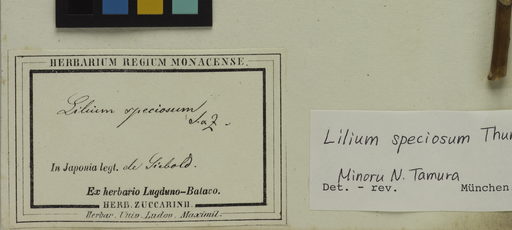 HERBARIUM REGIUM MONACENSE.
Lilium speciosum
S. a Z. -
In Japonia legt. de Siebold.
Ex herbario Lugduno-Batavo.
HERB. ZUCCARINII.
Herbar. Univ. Ludov. Maximil.
Lilium speciosum Thun
Minoru N. Tamura
Det. - rev. München